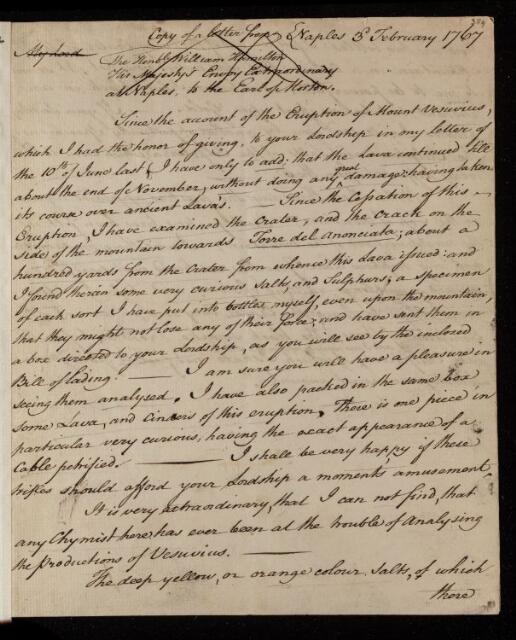 389
Copy of a letter from Naples 3 February 1767
My Lord
The Honble William Hamilton
His Majestys Envoy Extraordinary
at Naples, to the Earl of Morton.
Since the account of the Eruption of Mount Vesuvius,
which I had the honor of giving, to your Lordship in my letter of
the 10th of June last, I have only to add; that the Lava continued till
about the end of November, without doing any great damage; having taken
its course over ancient Lava's. — Since the Cessation of this
Eruption, I have examined the Crater, and the Crack on the
side of the mountain towards Torre del Anonciata; about a
hundred yards from the Crater from whence this Lava issued: and
I found therein some very curious Salts, and Sulphurs; a specimen
of each sort I have put into bottles myself, even upon the mountain,
that they might not lose any of their force; and have sent them in
a box directed to your Lordship, as you will see by the inclosed
Bill of lading. — I am sure you will have a pleasure in
seeing them analysed. I have also packed in the same box
some Lava, and cinders of this eruption, There is one piece in
particular very curious, having the exact appearance of a
Cable petrified. — I shall be very happy if these
trifles should afford your Lordship a moments amusement.
It is very extraordinary, that I can not find, that
any Chymist here, has ever been at the trouble of Analysing
the Productions of Vesuvius. —
The deep yellow, or orange colour Salts, of which
there